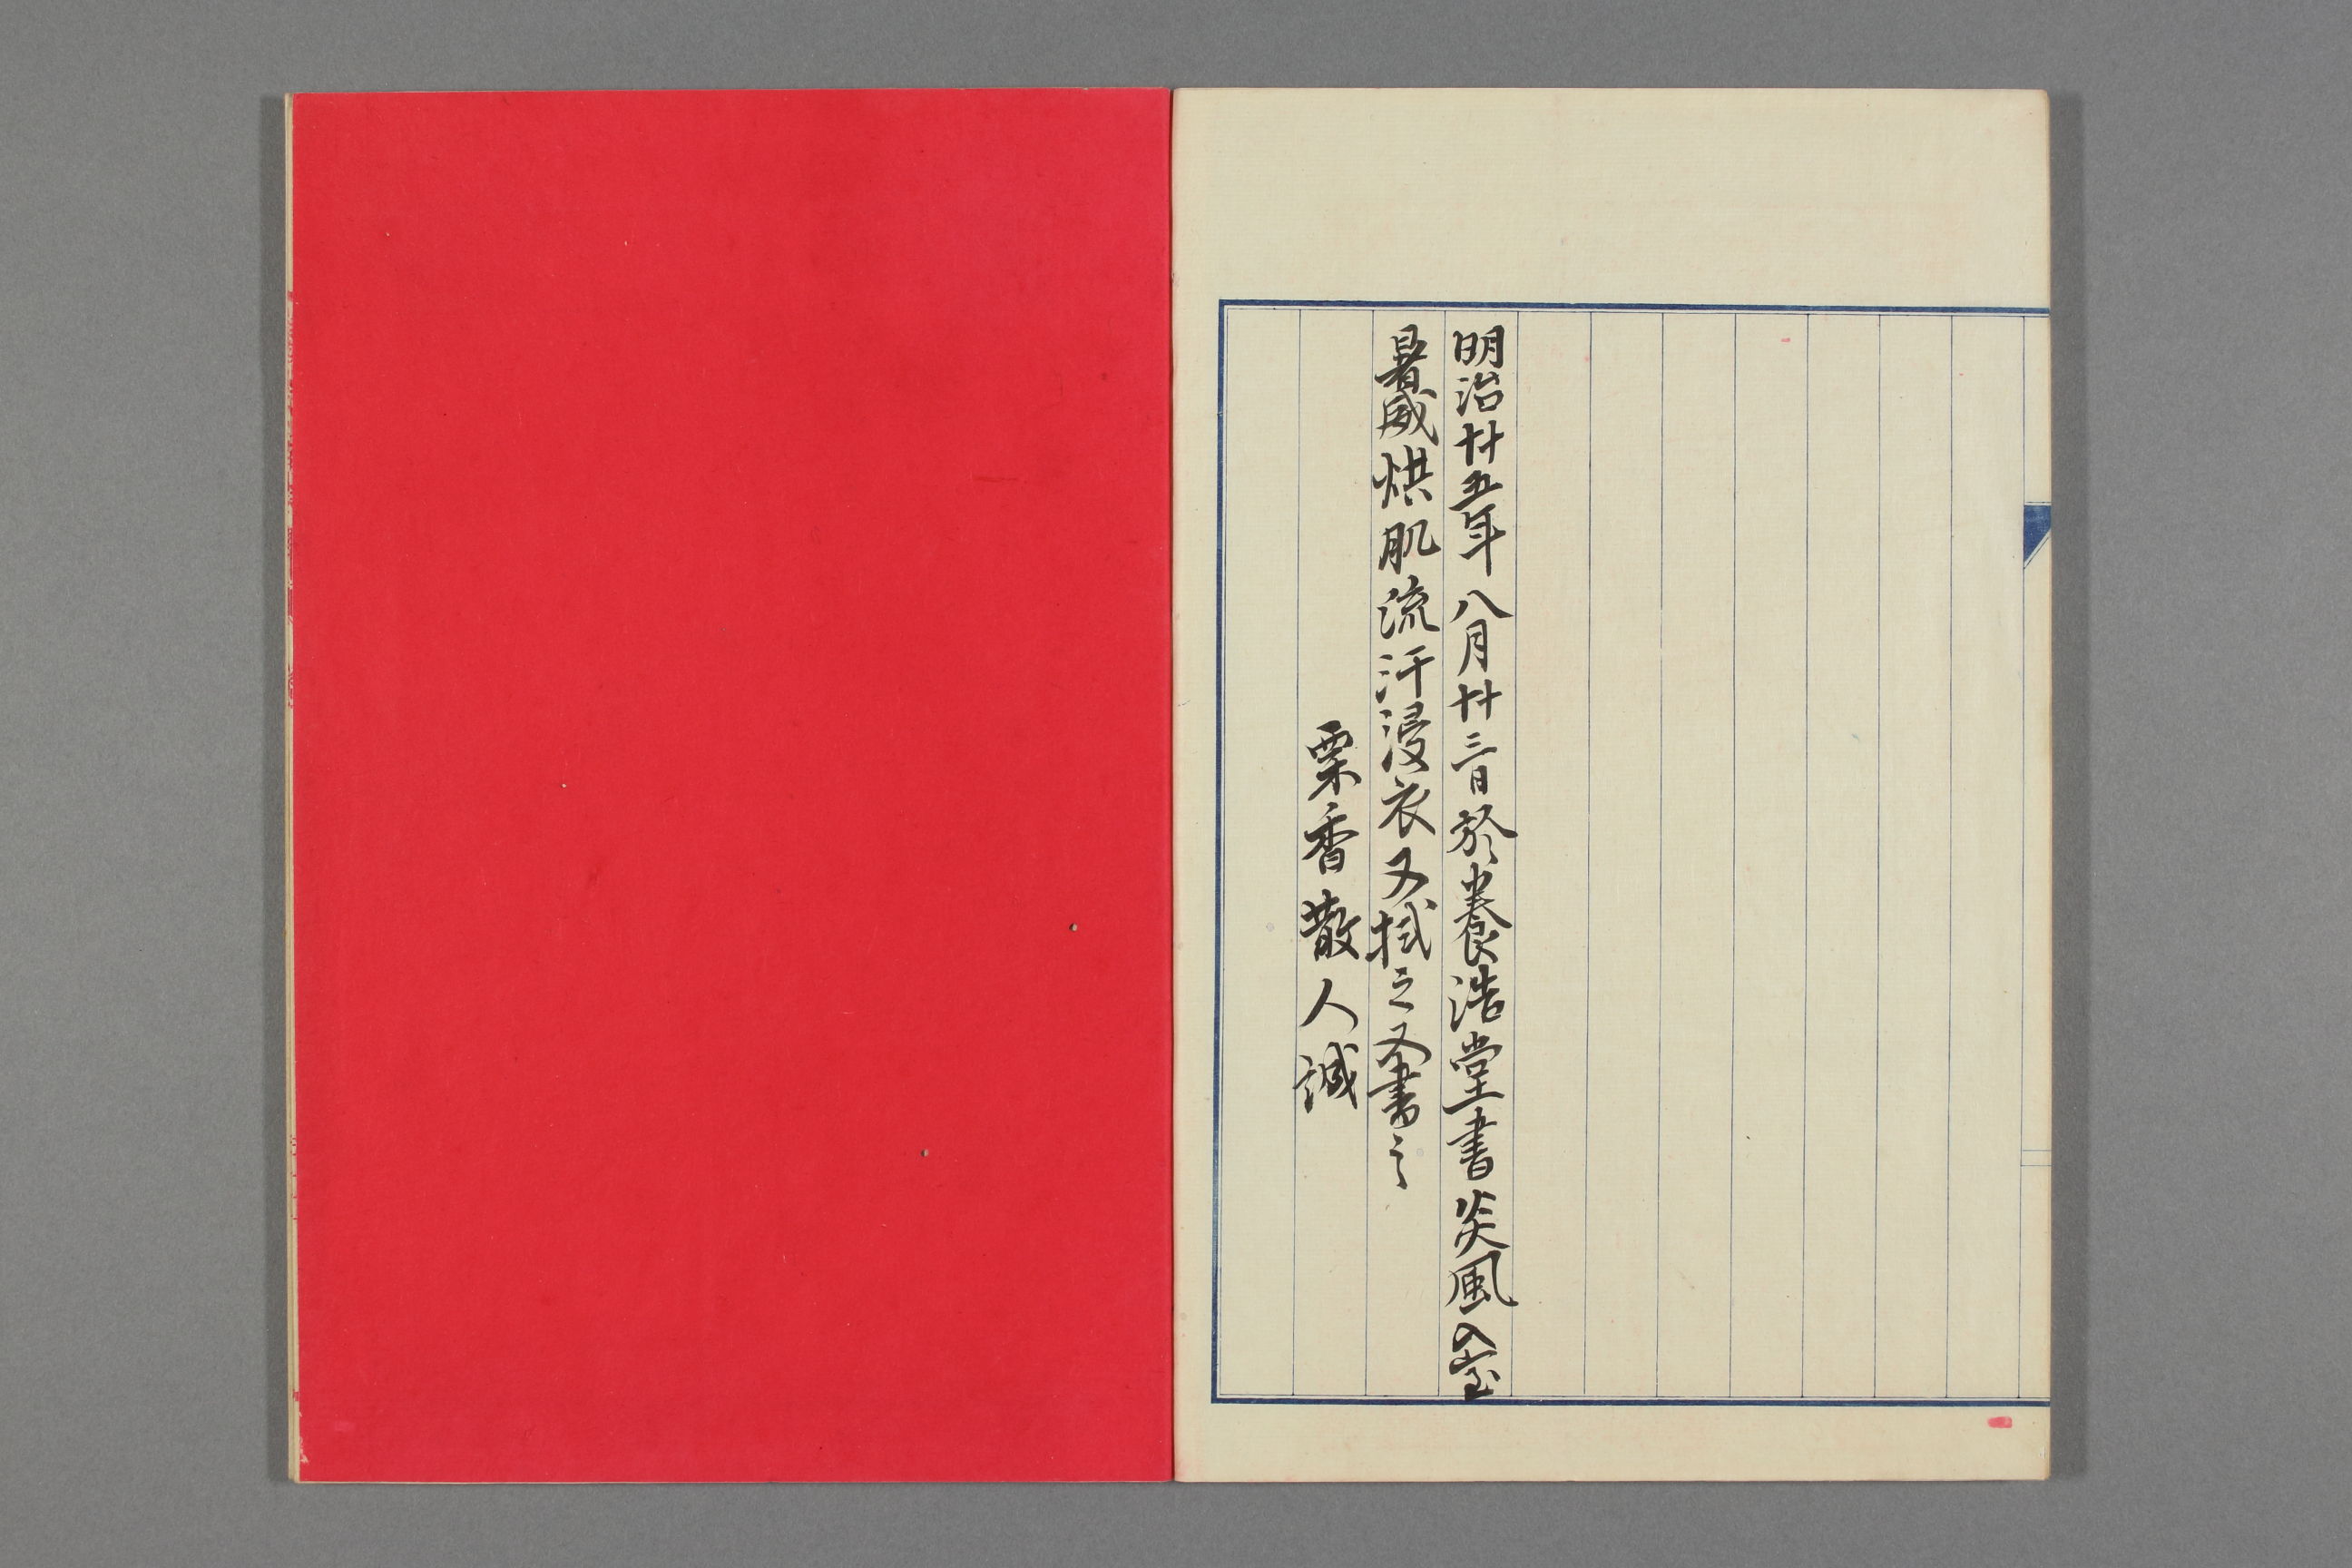 明治廿五年八月廿三日於養浩堂書炎風入室
暑威烘肌流汗浸衣又拭之又書之
栗香散人誠